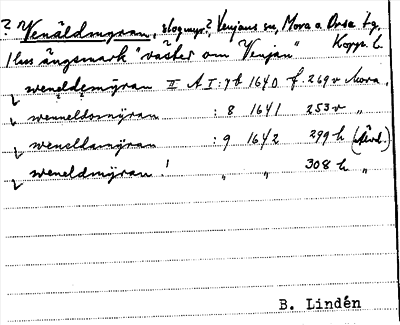 ? Venäldmyran, slogmyr? Venjans sn, Mora o. Orsa tg.
1 lus ängsmark "väster om Venjan" Kopp. l.
weneldemÿran II A I : 7b 1640 f. 269 v Mora.
wenneldomÿran : 8 1641 253 v "
weneldamÿran : 9 1642 299 h (Älvd.)
weneldmÿran ! " " 308 h "
B. Lindén